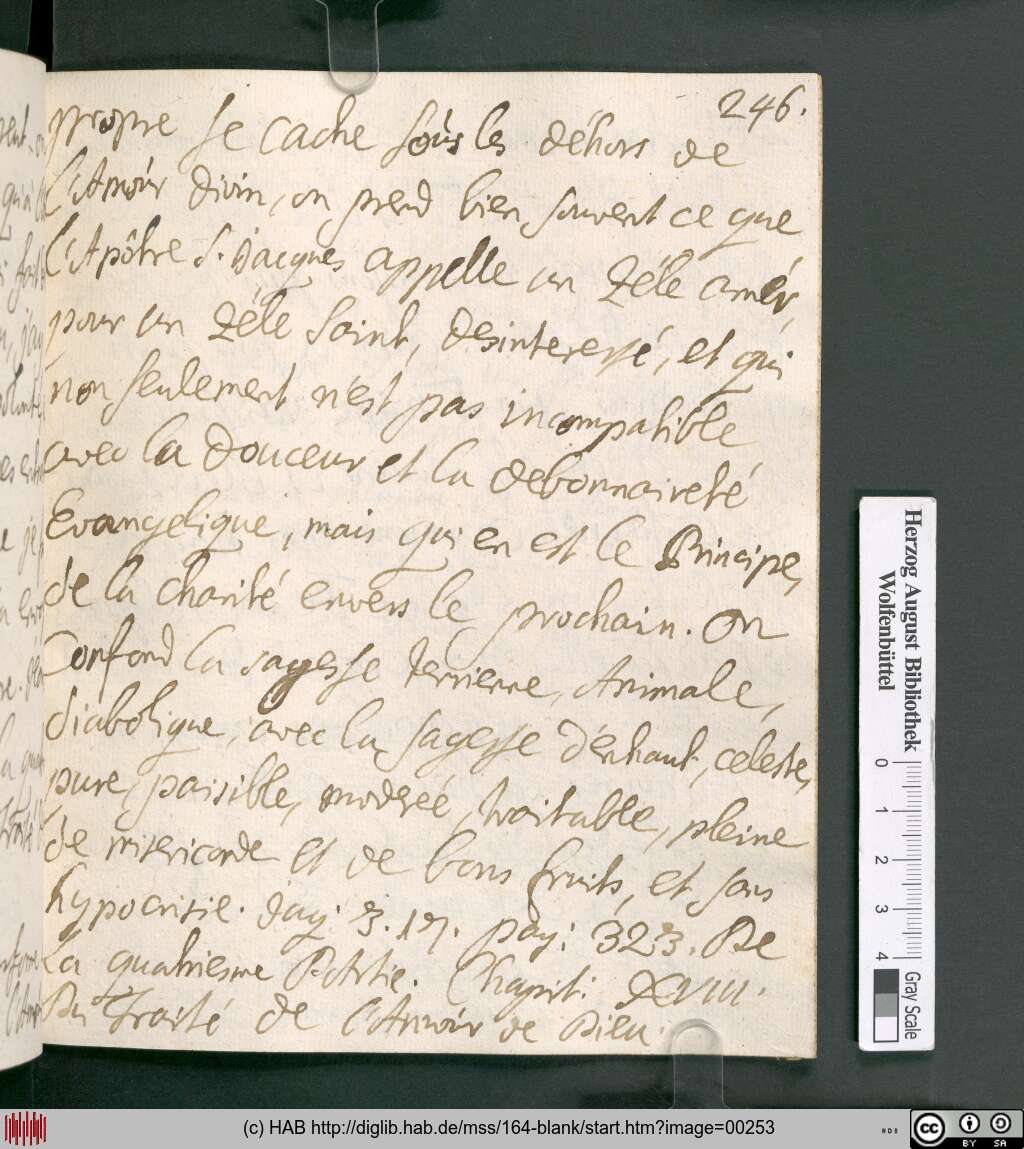 246.
propre se cache soùs les déhors de
l'Amoùr divin, on prend bien souvent ce que
l'Apôtre S. Jacques appelle un Zéle amér,
pour un Zéle Saint, desinteressé, et qui
non seulement n'est pas incompatible
avec la douceur et la debonnaireté
Evangelique, mais qui en est le Principe,
de la charité envers le prochain. On
Confond la sagesse terrienne, Animale,
diabolique, avec la sagesse d'enhaut, celeste,
pure, paisible, moderée, traitable, pleine
de misericorde et de bons fruits, et sans
hypocrisie. Jaq: 3. 17. pag: 323. De
La quatriesme Partie. Chapit: XVIII.
Du Traité de l'Amoùr de Dieu.
Herzog August Bibliothek
Wolfenbüttel
0 1 2 3 4
Gray Scale
(c) HAB http://diglib.hab.de/mss/164-blank/start.htm?image=00253
cc BY SA